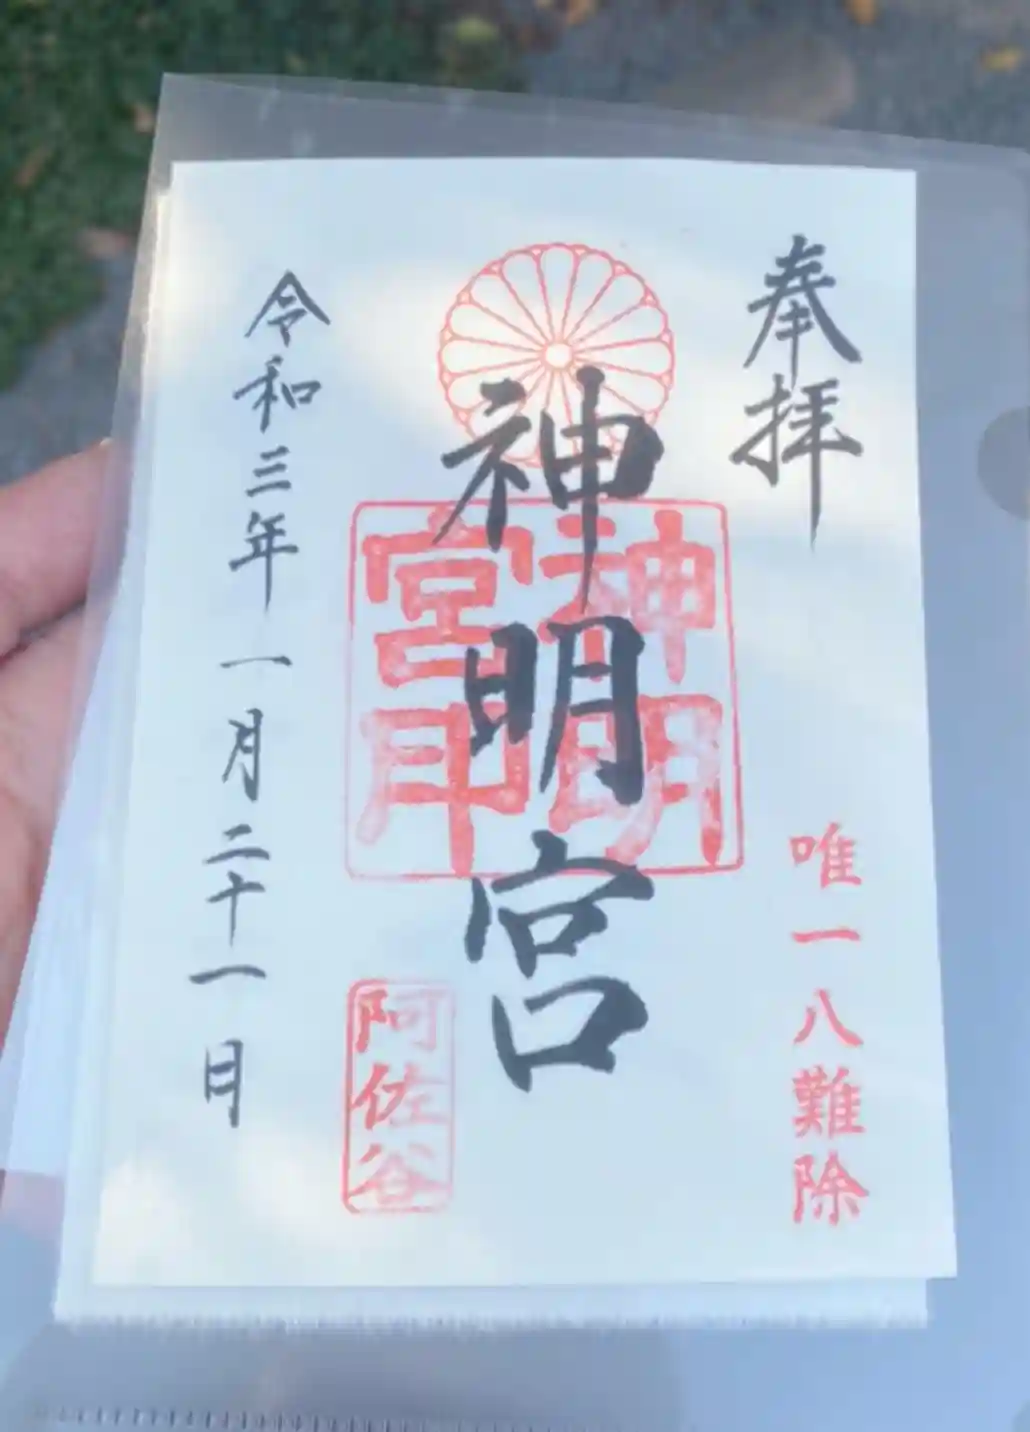 奉拝
唯一八難除
神明宮
神明宮印
阿佐谷
令和三年一月二十一日